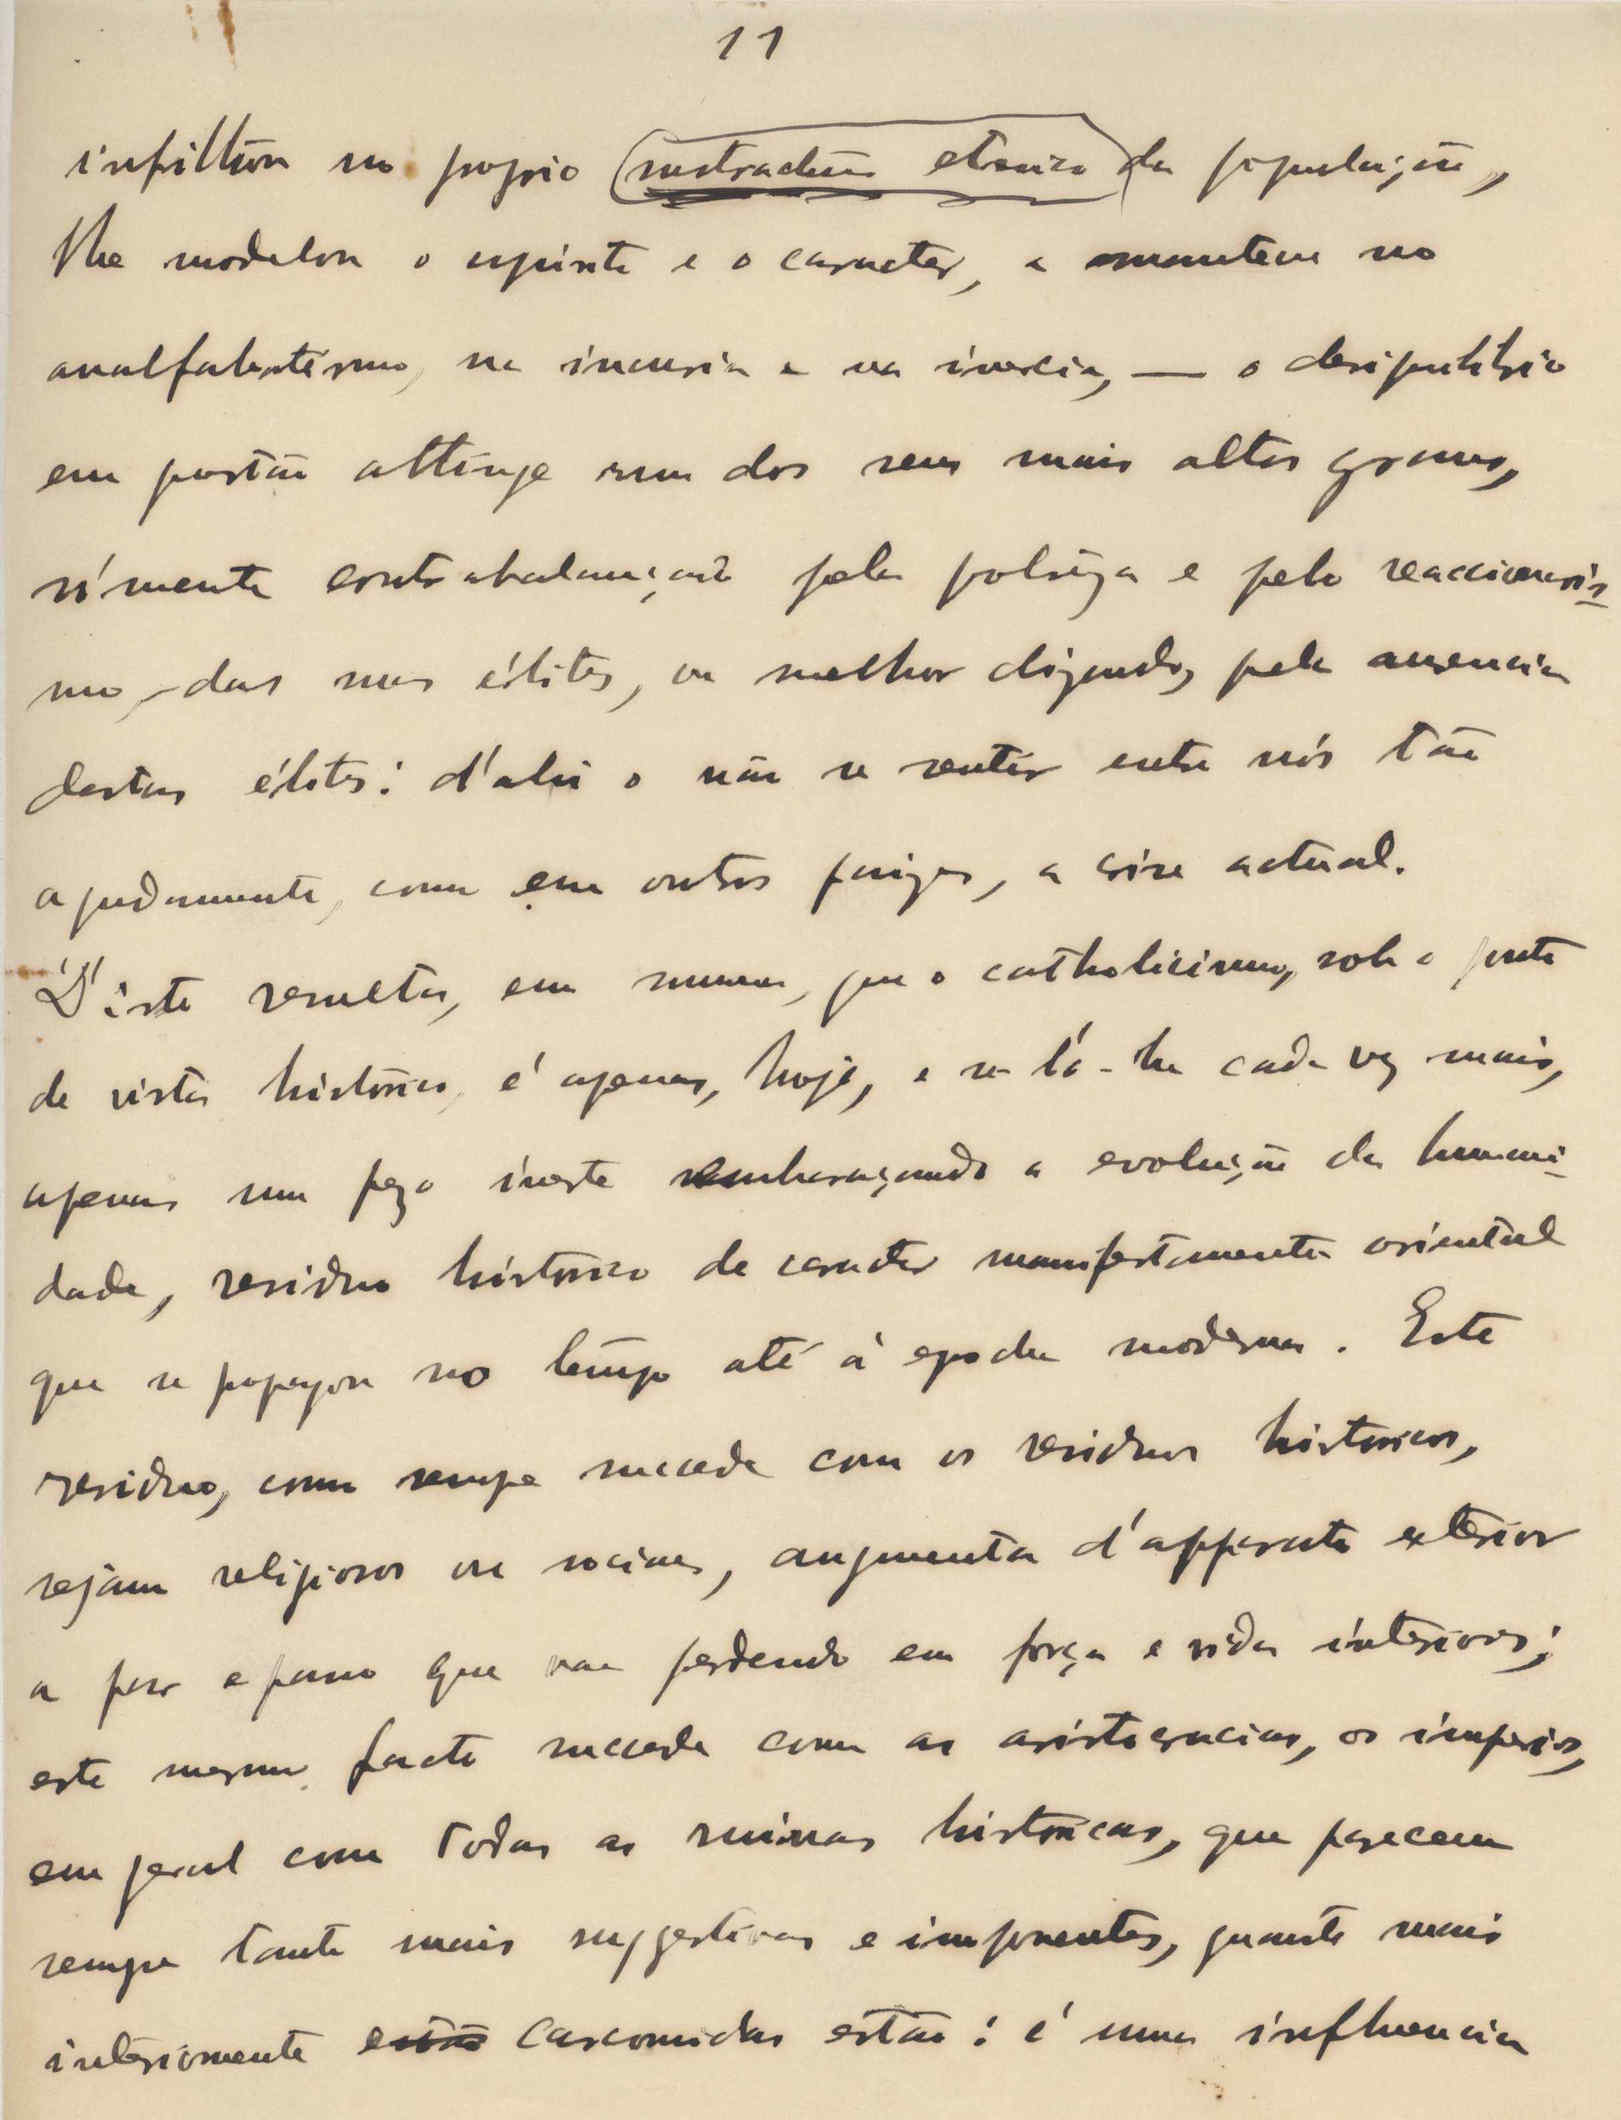 11
infiltrou no proprio substractum etnico da população,
lhe modelou o espirito e o caracter, e mantem no
analfabetismo, na incuria e na inercia, — o desiquilibrio
em questão attinge um dos seus mais altos graus,
sómente contrabalançado pela preguiça e pelo reaccionaris-
mo, das suas élites, ou melhor dizendo, pela ausencia
destas élites: d'ahi o não se sentir entre nós tão
agudamente, como em outros paizes, a crise actual.
D'isto resulta, em summa, que o catholicismo, sob o ponto
de vista historico, é apenas, hoje, e se-lo-ha cada vez mais,
apenas um pezo inerte embaraçando a evolução da humani-
dade, residuo historico de caracter manifestamente oriental
que se propagou no tempo até á epocha moderna. Este
residuo, como sempre succede com os residuos historicos,
sejam religiosos ou sociaes, augmenta d'apparato exterior
a passo e passo que vae perdendo em força e vida interiores;
este mesmo facto succede com as aristocracias, os imperios,
em geral com todas as ruinas historicas, que parecem
sempre tanto mais suggestivas e imponentes, quanto mais
interiormente estão carcomidas estão: é uma influencia